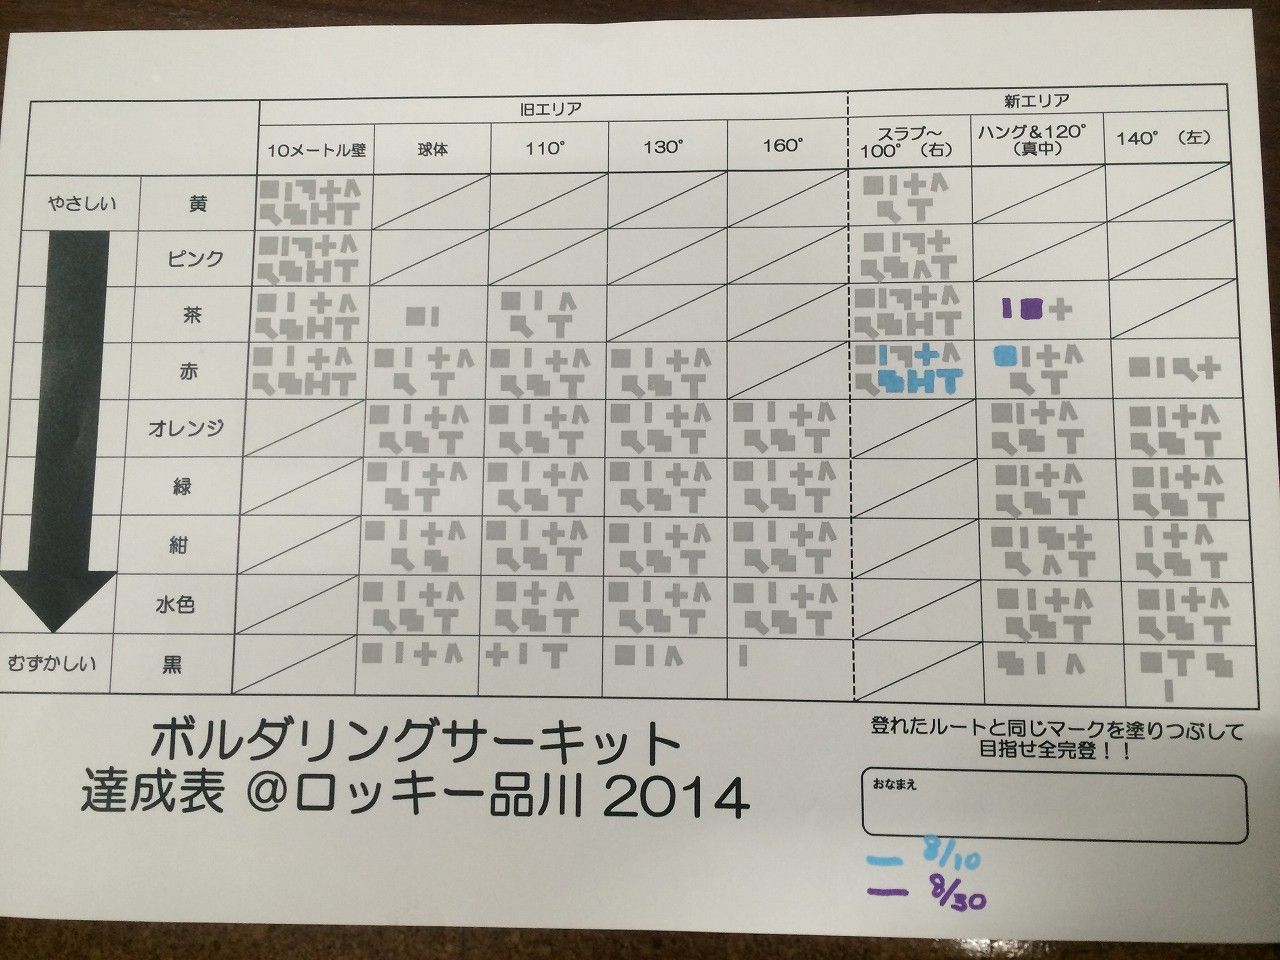 旧エリア 新エリア
10メートル壁 球体 110° 130° 160° スラブ～100°（右） ハング&120°（真中） 140°（左）
やさしい 黄
ピンク
茶
赤
オレンジ
緑
紺
水色
むずかしい 黒
ボルダリングサーキット
達成表 @ロッキー品川 2014
登れたルートと同じマークを塗りつぶして
目指せ全完登！！
おなまえ
8/10
8/30